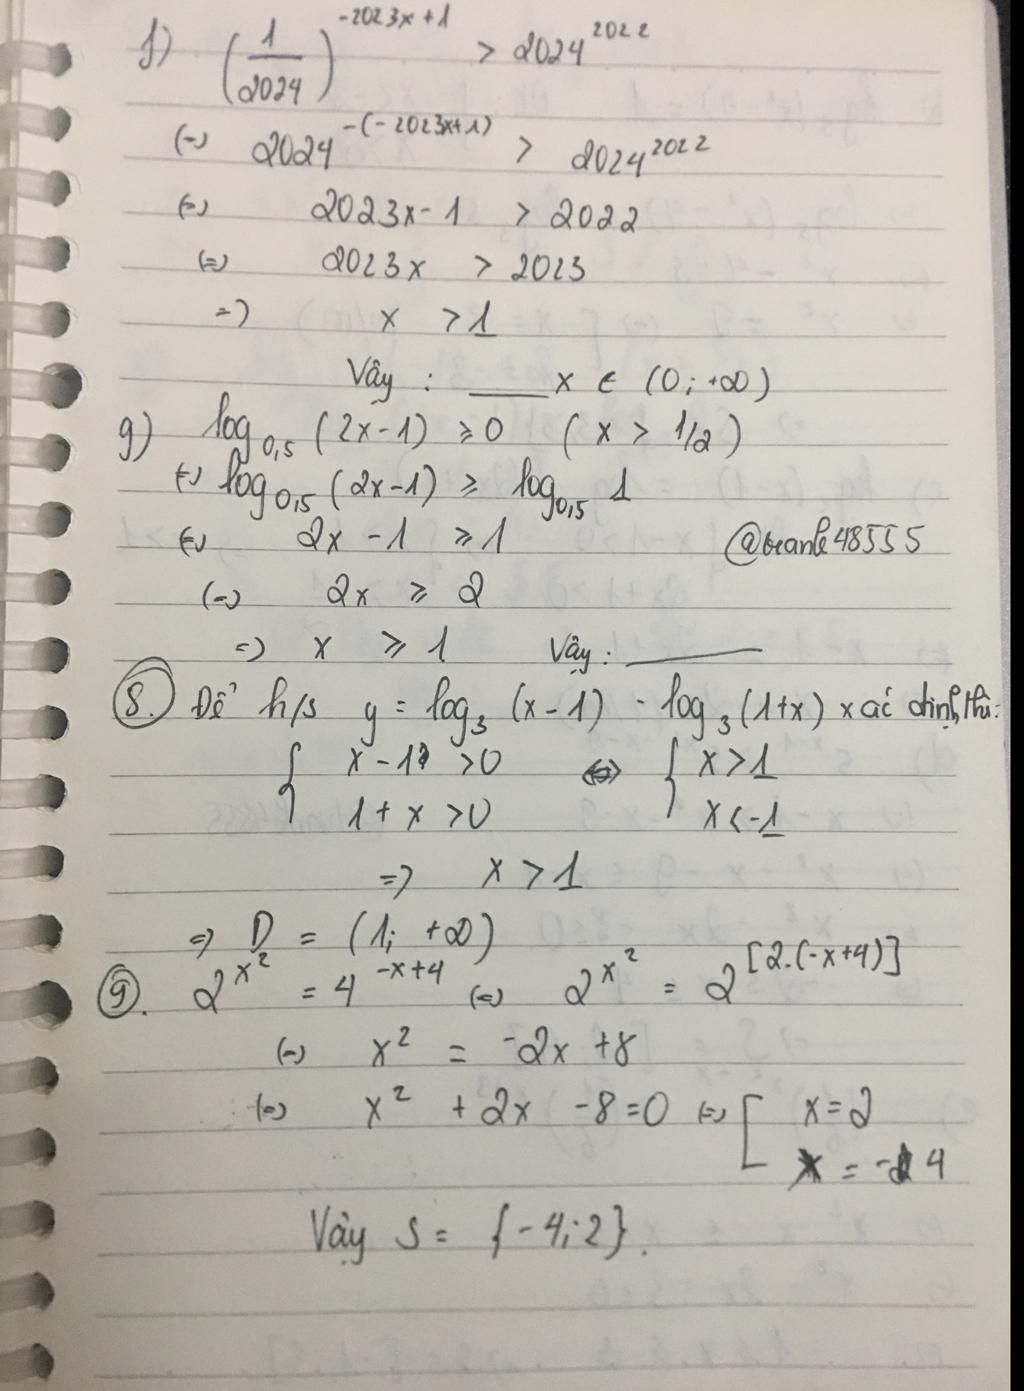 f) (1/2024)^(-2023x+1) > 2024^2022
(=) 2024^(-(-2023x+1)) > 2024^2022
(=) 2023x - 1 > 2022
(=) 2023x > 2023
=) x > 1
Vây : ____ x ∈ (0; +∞)
g) log_0,5 (2x-1) ⩾ 0 (x > 1/2)
(=) log_0,5 (2x-1) ⩾ log_0,5 1
(=) 2x - 1 ⩾ 1
(=) 2x ⩾ 2
=) x ⩾ 1 Vậy : ____
8. Để h/s y = log_3 (x-1) - log_3 (1+x) xác định thì:
{ x - 1 > 0 (=) { x > 1
1 + x > 0 x < -1
=) x > 1
=) D = (1; +∞)
9. 2^x^2 = 4^(-x+4) (=) 2^x^2 = 2^[2.(-x+4)]
(=) x^2 = -2x + 8
(=) x^2 + 2x - 8 = 0 (=) [ x = 2
x = -4
Vậy S = {-4; 2}.